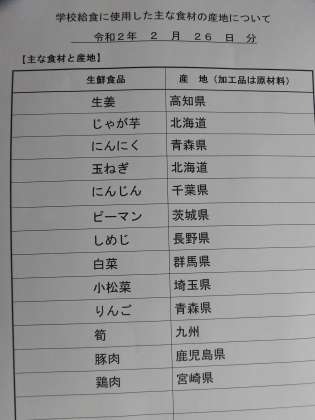 学校給食に使用した主な食材の産地について
令和２年 ２ 月 ２６ 日 分
【主な食材と産地】
生鮮食品 産 地（加工品は原材料）
生姜 高知県
じゃが芋 北海道
にんにく 青森県
玉ねぎ 北海道
にんじん 千葉県
ピーマン 茨城県
しめじ 長野県
白菜 群馬県
小松菜 埼玉県
りんご 青森県
筍 九州
豚肉 鹿児島県
鶏肉 宮崎県